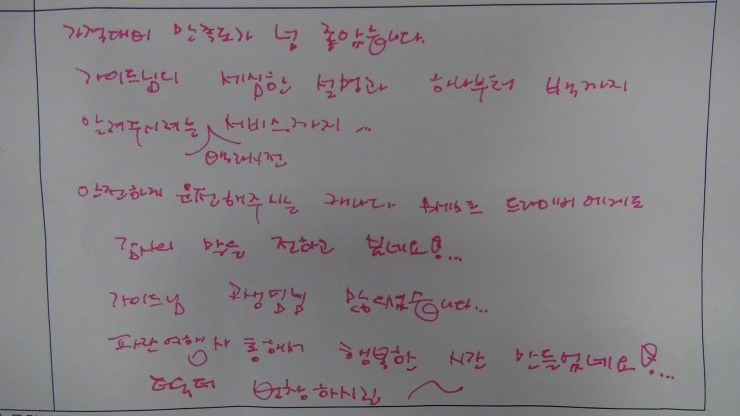 가격대비 만족도가 넘 좋았습니다.
가이드님의 세심한 설명과 하나부터 백까지
알려주시려는 서비스까지...
안전하게 운전해주시는 캐나다 드라이버에게도
감사의 말을 전하고 싶네요!...
가이드님 고생많님 많으셨습니다...
파란여행사 통해서 행복한 시간 만들었네요!...
더욱더 번창하시길 ~